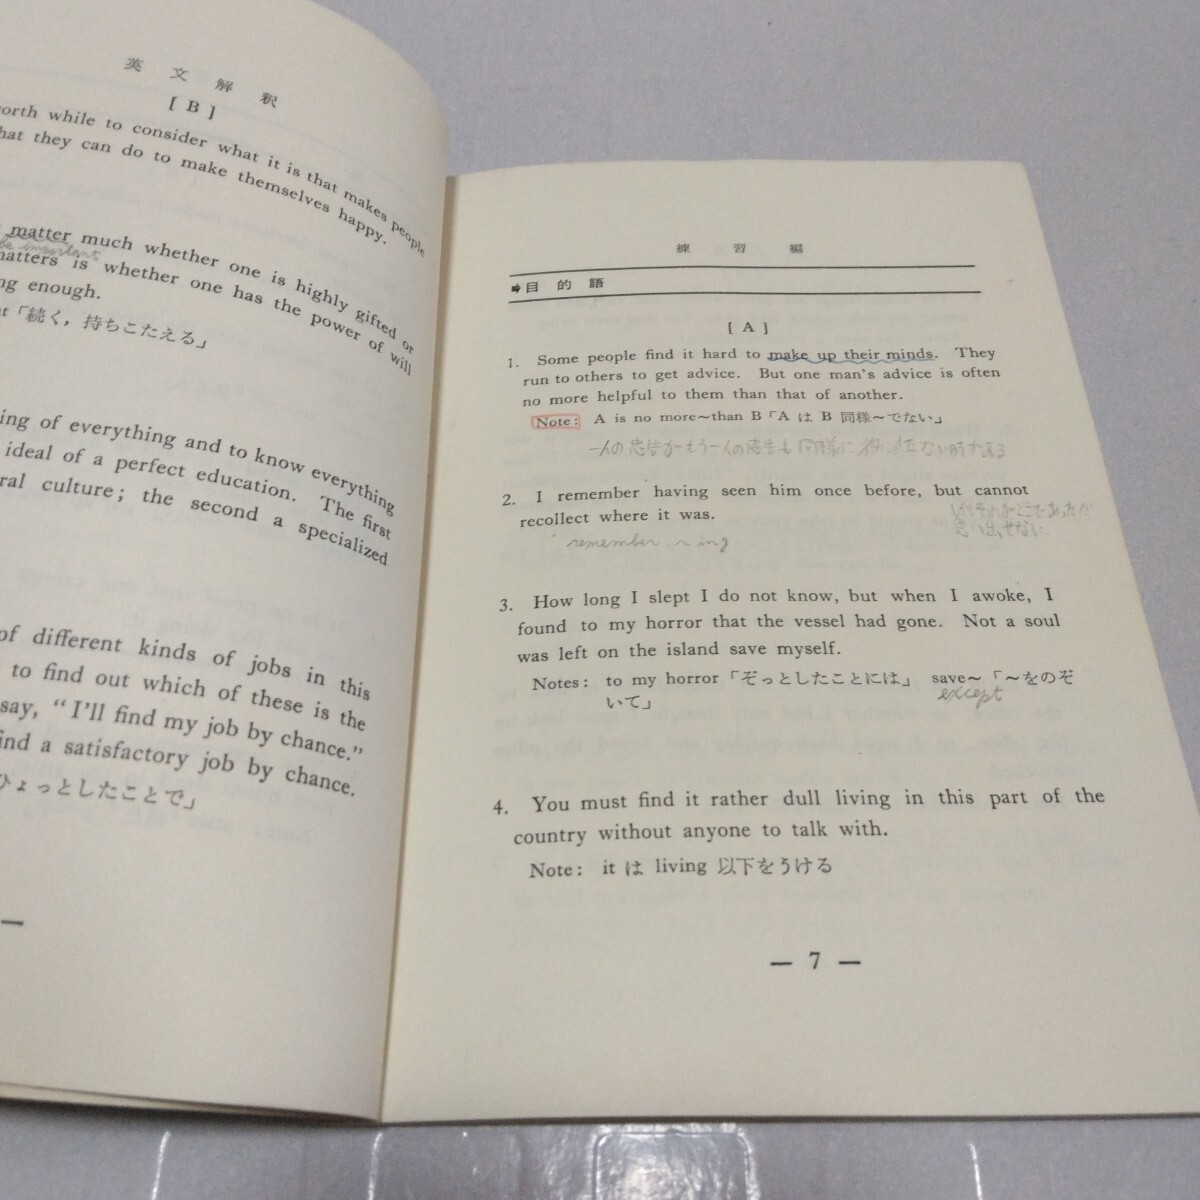 英文解釈
[ B ]
orth while to consider what it is that makes people
hat they can do to make themselves happy.
matter much whether one is highly gifted or
be important
matters is whether one has the power of will
ng enough.
「続く,持ちこたえる」
ing of everything and to know everything
ideal of a perfect education. The first
ral culture; the second a specialized
of different kinds of jobs in this
to find out which of these is the
say, "I'll find my job by chance."
ind a satisfactory job by chance.
ひょっとしたことで」
練習編
➡目的語
[ A ]
1. Some people find it hard to make up their minds. They
run to others to get advice. But one man's advice is often
no more helpful to them than that of another.
Note: A is no more~than B「A は B 同様~でない」
一人の忠告がもう一人の忠告も同様に役に立たない時がある
2. I remember having seen him once before, but cannot
recollect where it was.
しかしそれがどこであったか
思い出せない.
remember ~ing
3. How long I slept I do not know, but when I awoke, I
found to my horror that the vessel had gone. Not a soul
was left on the island save myself.
Notes: to my horror「ぞっとしたことには」 save~「~をのぞ
いて」
except
4. You must find it rather dull living in this part of the
country without anyone to talk with.
Note: it は living 以下をうける
— 7 —